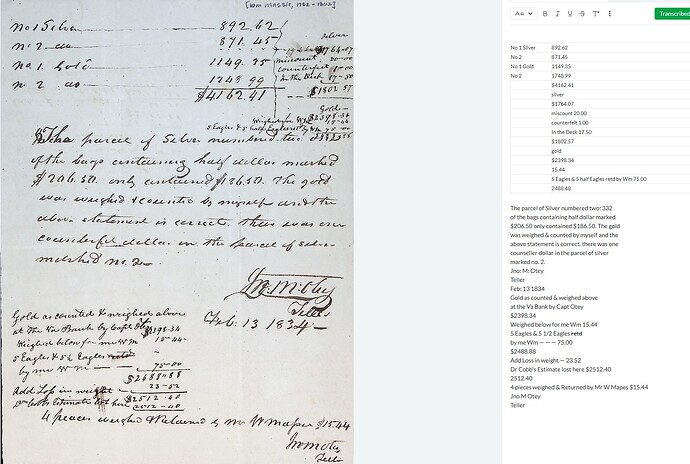 [Wm MASSIE, 1782-1862]
No 1 Silver 892.62
No 2 do 871.45
No. 1 Gold 1149.35
No. 2 do 1248.99
$4162.41
Silver
$1764-07
miscount 20-00
counterfeit 1-00
In the Desk 17-50
$1802 57
Gold
$2398-34
Weighed for Wm 15-44
5 Eagles & 5 half Eagles retd by Wm 75-00
The parcel of Silver numbered two:
of the bags containing half dollar marked
$206.50 only contained $186.50. The gold
was weighed & counted by myself and the
above statement is correct. there was one
counterfeit dollar in the parcel of silver
marked no. 2
Jno. M. Otey
Teller
Feb: 13 1834
Gold as counted & weighed above
at the Va Bank by Capt Otey $2398-34
Weighed below for me Wm 15-44
5 Eagles & 5 ½ Eagles retd
by me Wm 75-00
$2488.88
Add Loss in weight 23-52
Dr Cobb's Estimate lost here $2512.40
2512-40
4 pieces weighed & Returned by Mr W Mapes $15.44
Jno M Otey
Teller
Aa B I U S T
Transcribed
No 1 Silver 892.62
No 2 871.45
No 1 Gold 1149.35
No 2 1748.99
$4162.41
silver
$1764.07
miscount 20.00
counterfeit 1.00
In the Desk 17.50
$1802.57
gold
$2398.34
15.44
5 Eagles & 5 half Eagles retd by Wm 75.00
2488.48
The parcel of Silver numbered two: 332
of the bags containing half dollar marked
$206.50 only contained $186.50. The gold
was weighed & counted by myself and the
above statement is correct. there was one
counseller dollar in the parcel of silver
marked no. 2.
Jno: M: Otey
Teller
Feb: 13 1834
Gold as counted & weighed above
at the Va Bank by Capt Otey
$2398.34
Weighed below for me Wm 15.44
5 Eagles & 5 1/2 Eagles retd
by me Wm — — — 75.00
$2488.88
Add Loss in weight — 23.52
Dr Cobb's Estimate lost here $2512.40
2512.40
4 pieces weighed & Returned by Mr W Mapes $15.44
Jno M Otey
Teller